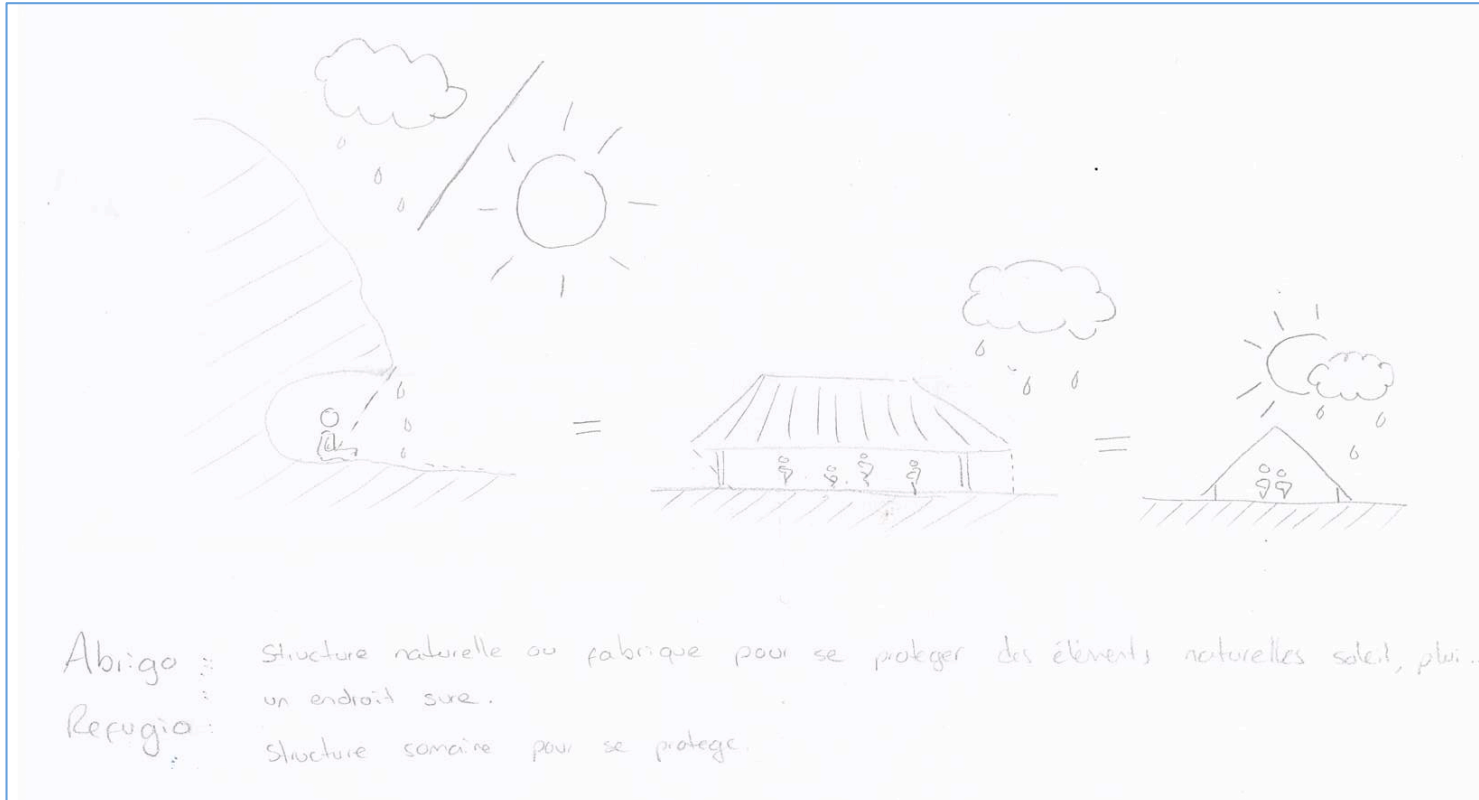 Abrigo : Structure naturelle ou fabrique pour se proteger des éléments naturelles soleil, plui..
un endroit sure.
Refugio :
Structure somaire pour se protege.